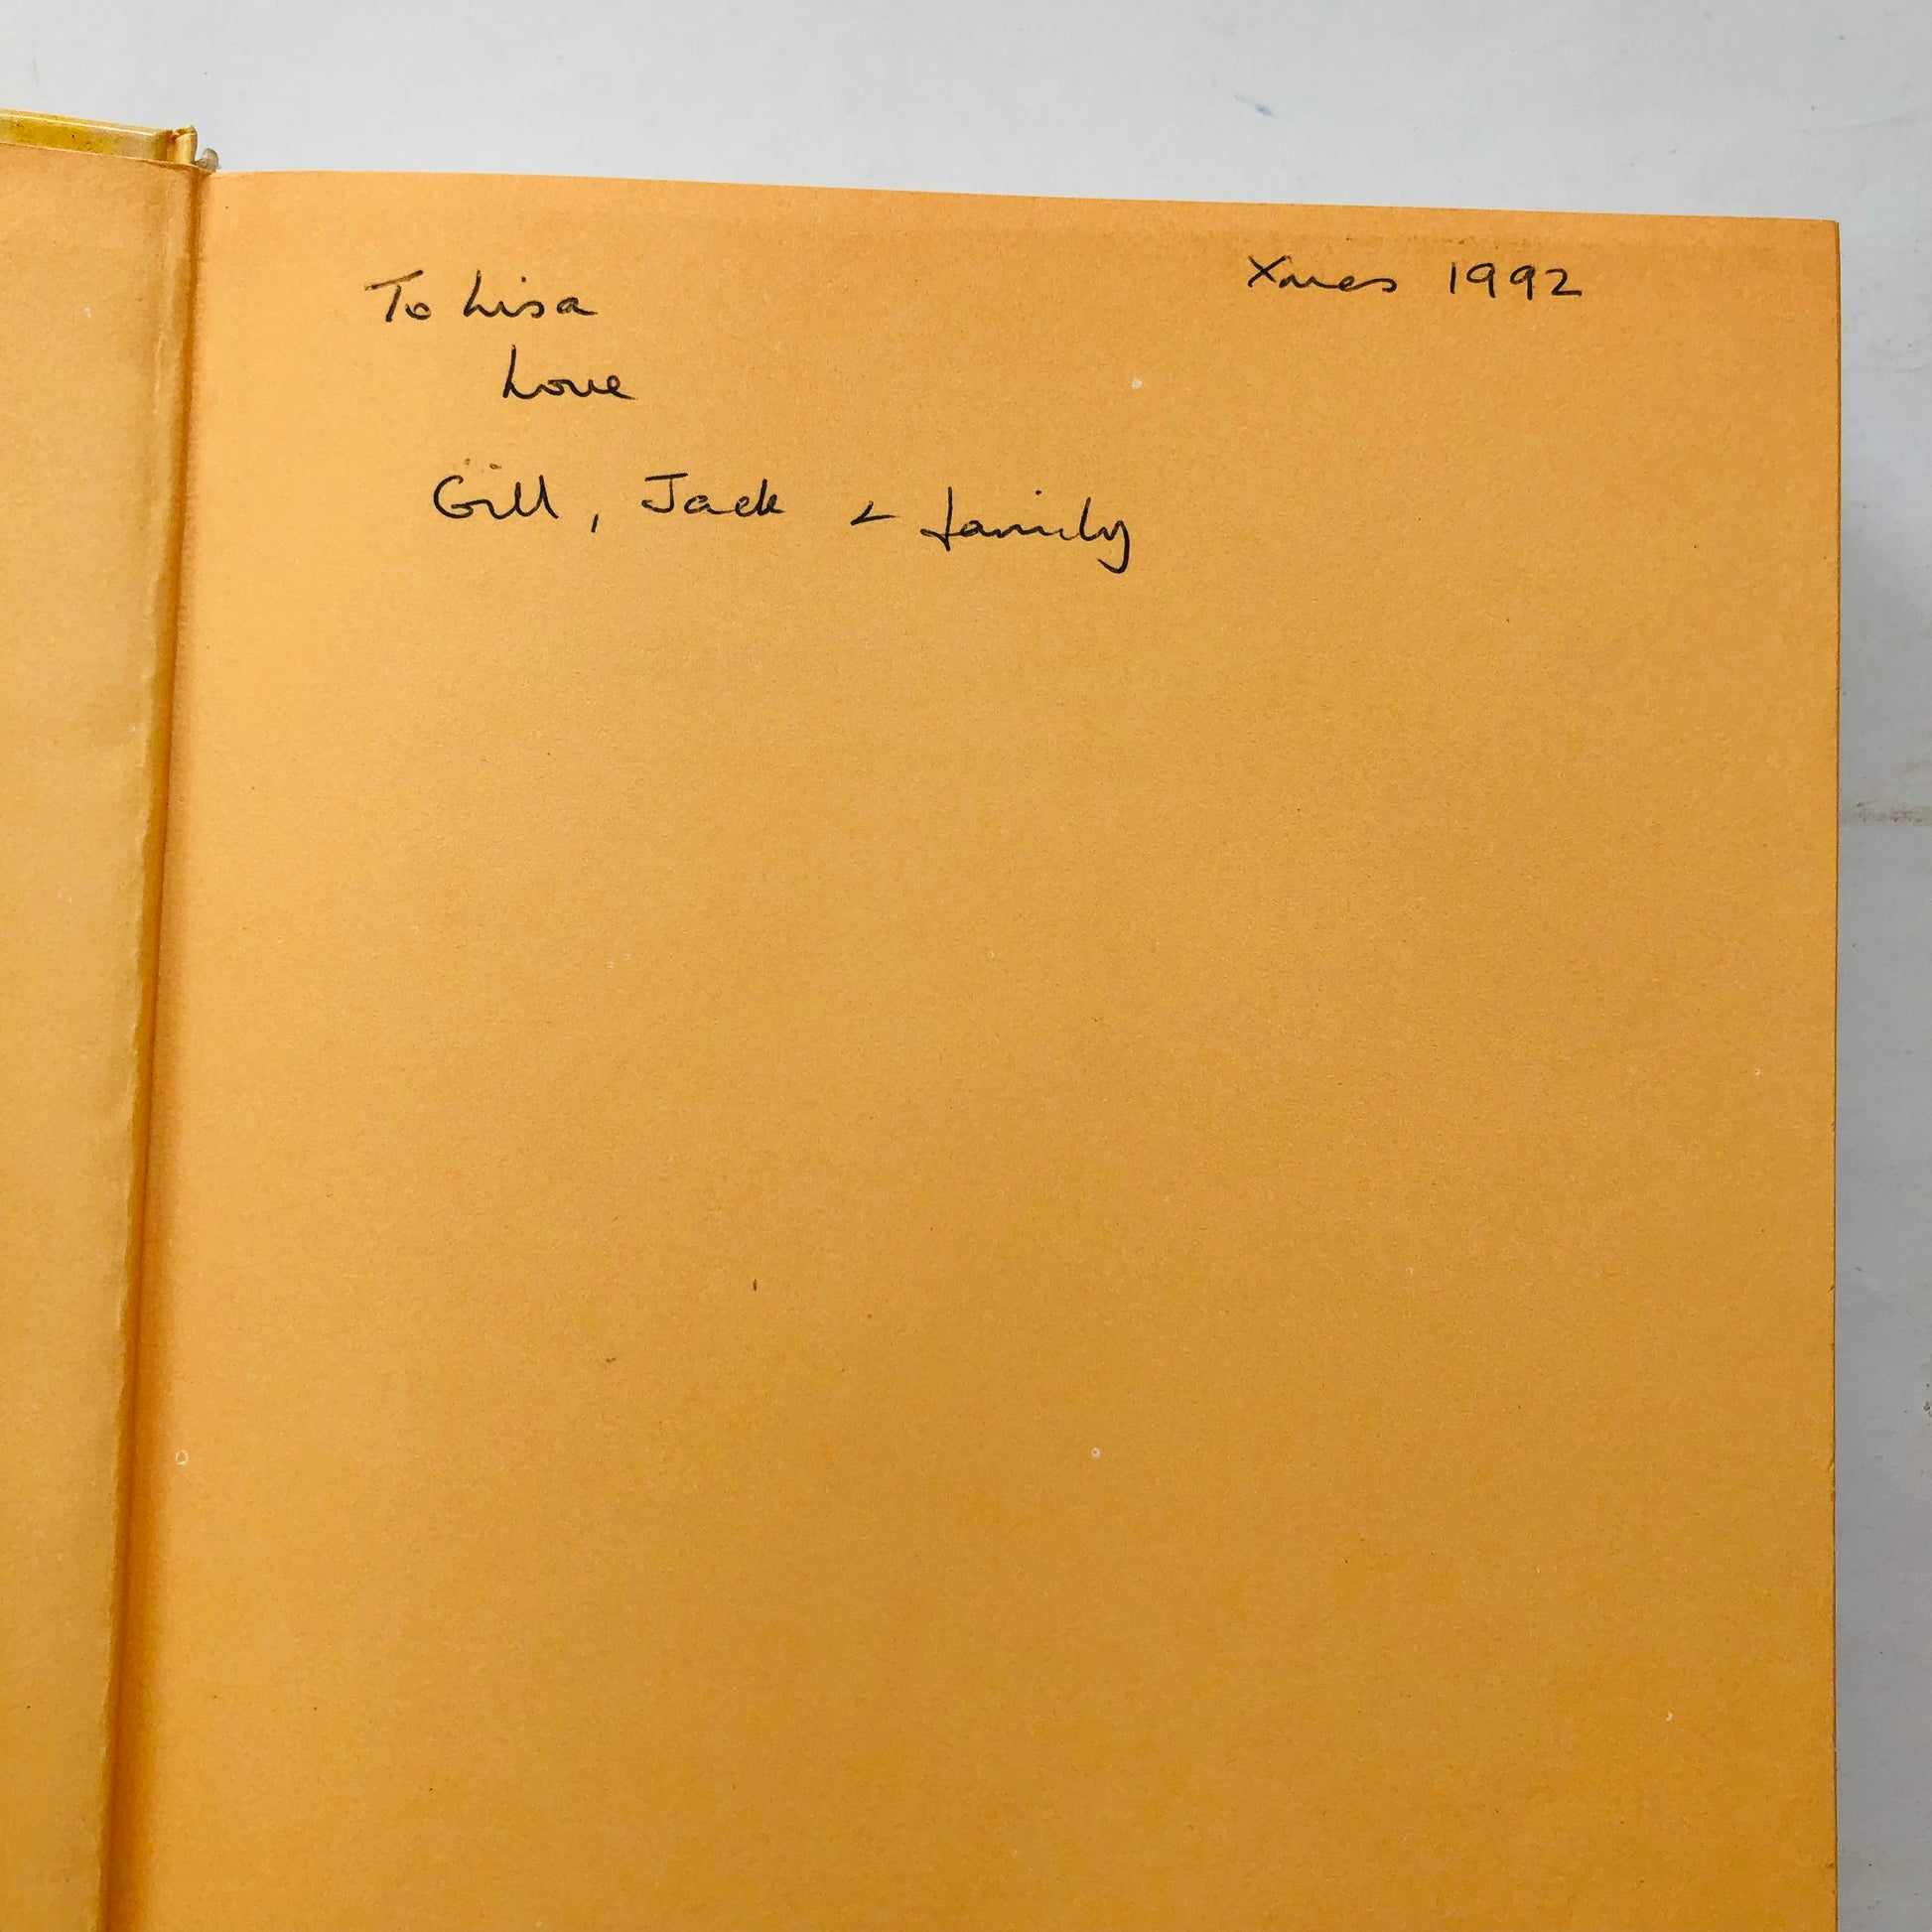 To Lisa
Xmas 1992
Love
Gill, Jack & family